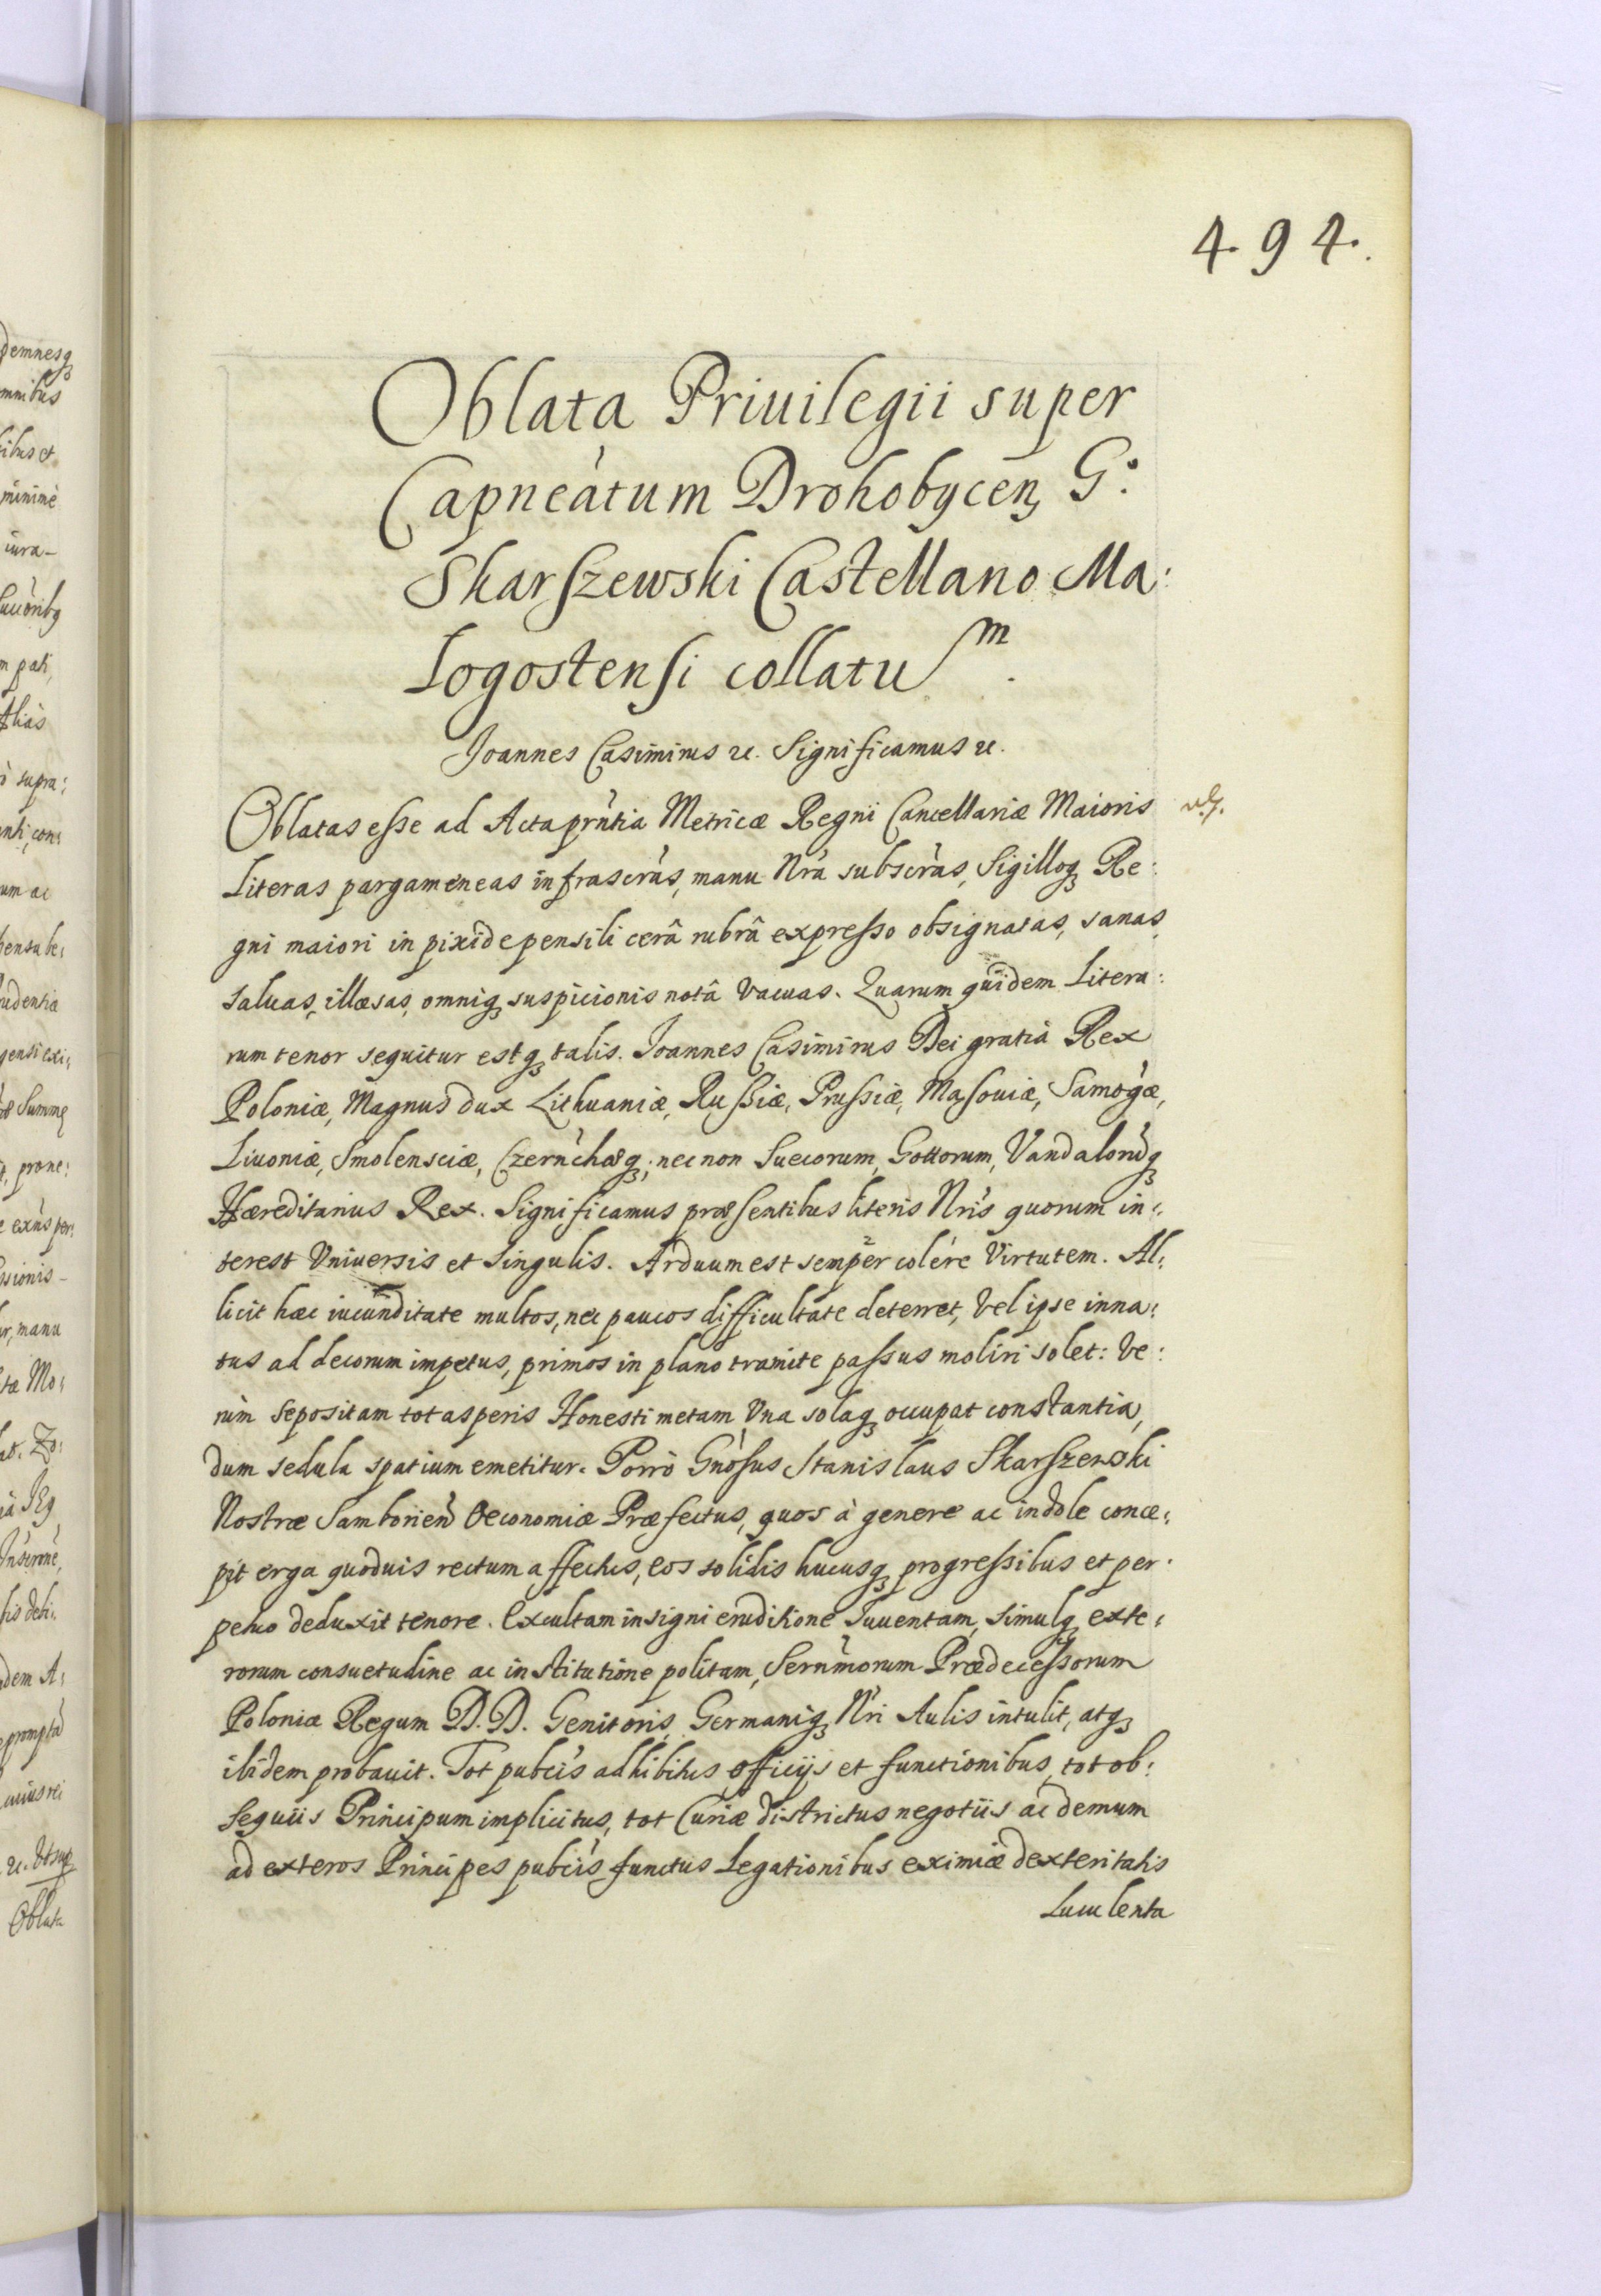 494.
Oblata Priuilegii super
Capneàtum Drohobycen̄ G.º
Skarszewski Castellano Ma:
logostensi collatuᵐ.
Joannes Casimirus etc. Significamus etc.
Oblatas esse ad Acta prńtia Metricæ Regni Cancellariæ Maioris
Literas pargameneas infrascràs, manu Nrà subscràs, Sigilloq Re:
gni maiori in pixide pensili cerâ rubrâ expresso obsignatas, sanas,
saluas, illæsas, omniq suspicionis notâ vacuas. Quarum quidem Litera:
rum tenor sequitur estq talis. Joannes Casimirus Dei gratia Rex
Poloniæ, Magnus dux Lithuaniæ, Russiæ, Prussiæ, Masouiæ, Samogæ,
Liuoniæ, Smolensciæ, Czerńchoæq; nec non Suecorum, Gottorum, Vandalorūq
Hæreditarius Rex. Significamus præsentibus literis Nris quorum in:
terest Vniuersis et singulis. Arduum est semper colére Virtutem. Al:
licit hæc iucunditate multos, nec paucos difficultate deterret, Vel ipse inna:
tus ad decorum impetus, primos in plano tramite passus moliri solet: Ve:
rùm sepositam tot asperis Honesti metam Vna solaq occupat constantia,
dum sedula spatium emetitur. Porrò Gńosus Stanislaus Skarszewski
Nostræ Samborien̄ Oeconomiæ Præfectus, quos à genere ac indole conce:
pit erga quoduis rectum affectus, eos solidis hucusq progressibus et per:
petuo deduxit tenore. Excultam insigni eruditione Juuentam, simulq exte:
rorum consuetudine ac institutione politam, Sernm̄orum Prædecessorum
Poloniæ Regum D. D. Genitoris, Germaniq Nri Aulis intulit, atq
ibidem probauit. Tot pubcìs adhibitus officijs et functionibus, tot ob:
sequiis Principum implicitus, tot Curiæ districtus negotiis ac demum
ad exteros Principes pubcìs functus Legationibus eximiæ dexteritatis
Luculenta